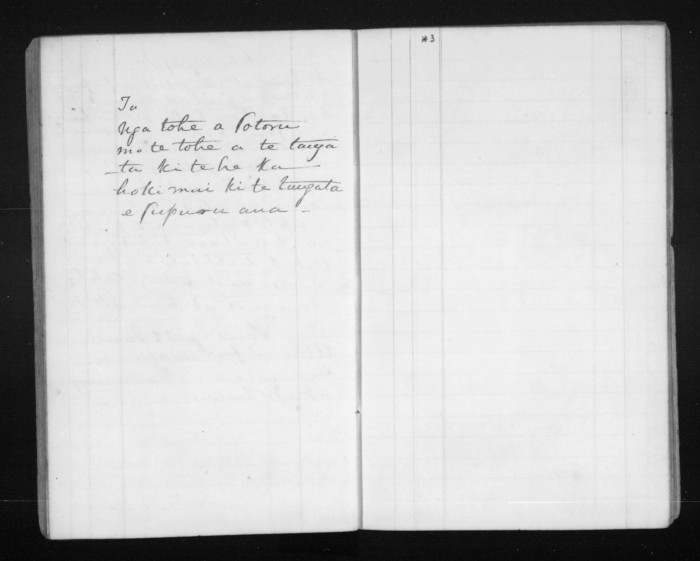 #3
Ta
Nga tohe a Potoru
mo te tohe a te tanga
ta ki te he ka
hoki mai ki te tangata
e pupuru ana –